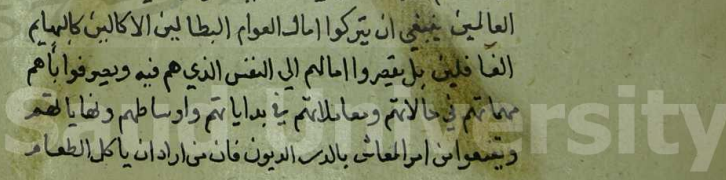 العالمين ينبغي ان يتركوا امال العوام البطالين الاكالين كالبهايم
الغافلين بل يقصروا امالهم الي النفس الذي هم فيه ويصرفوا باهم
مهماتهم في حالاتهم ومعاملاتهم في بداياتهم واوساطهم ونهاياتهم
ويقنعوا من امر المعاش بالدون فان من اراد ان ياكل الطعام